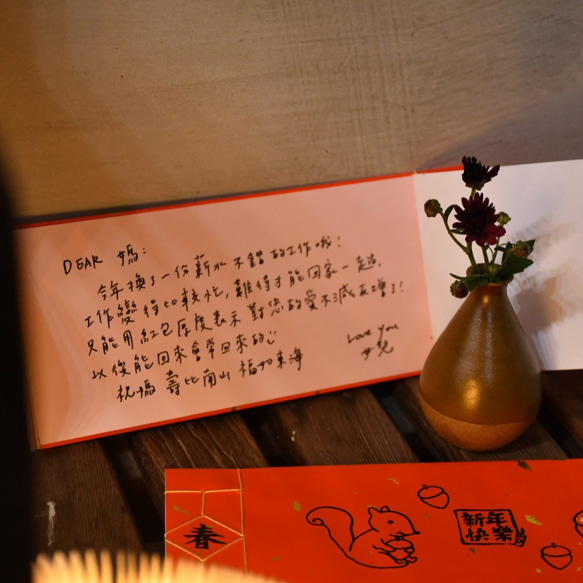 DEAR 媽:
今年換了一份薪水不錯的工作哦!
工作變得比較忙,難得才能回家一趟,
只能用紅包厚度表示對您的愛不減反增了!
以後能回來會常回來的
祝媽 壽比南山 福如東海
Love you
女兒
春
新年
快樂